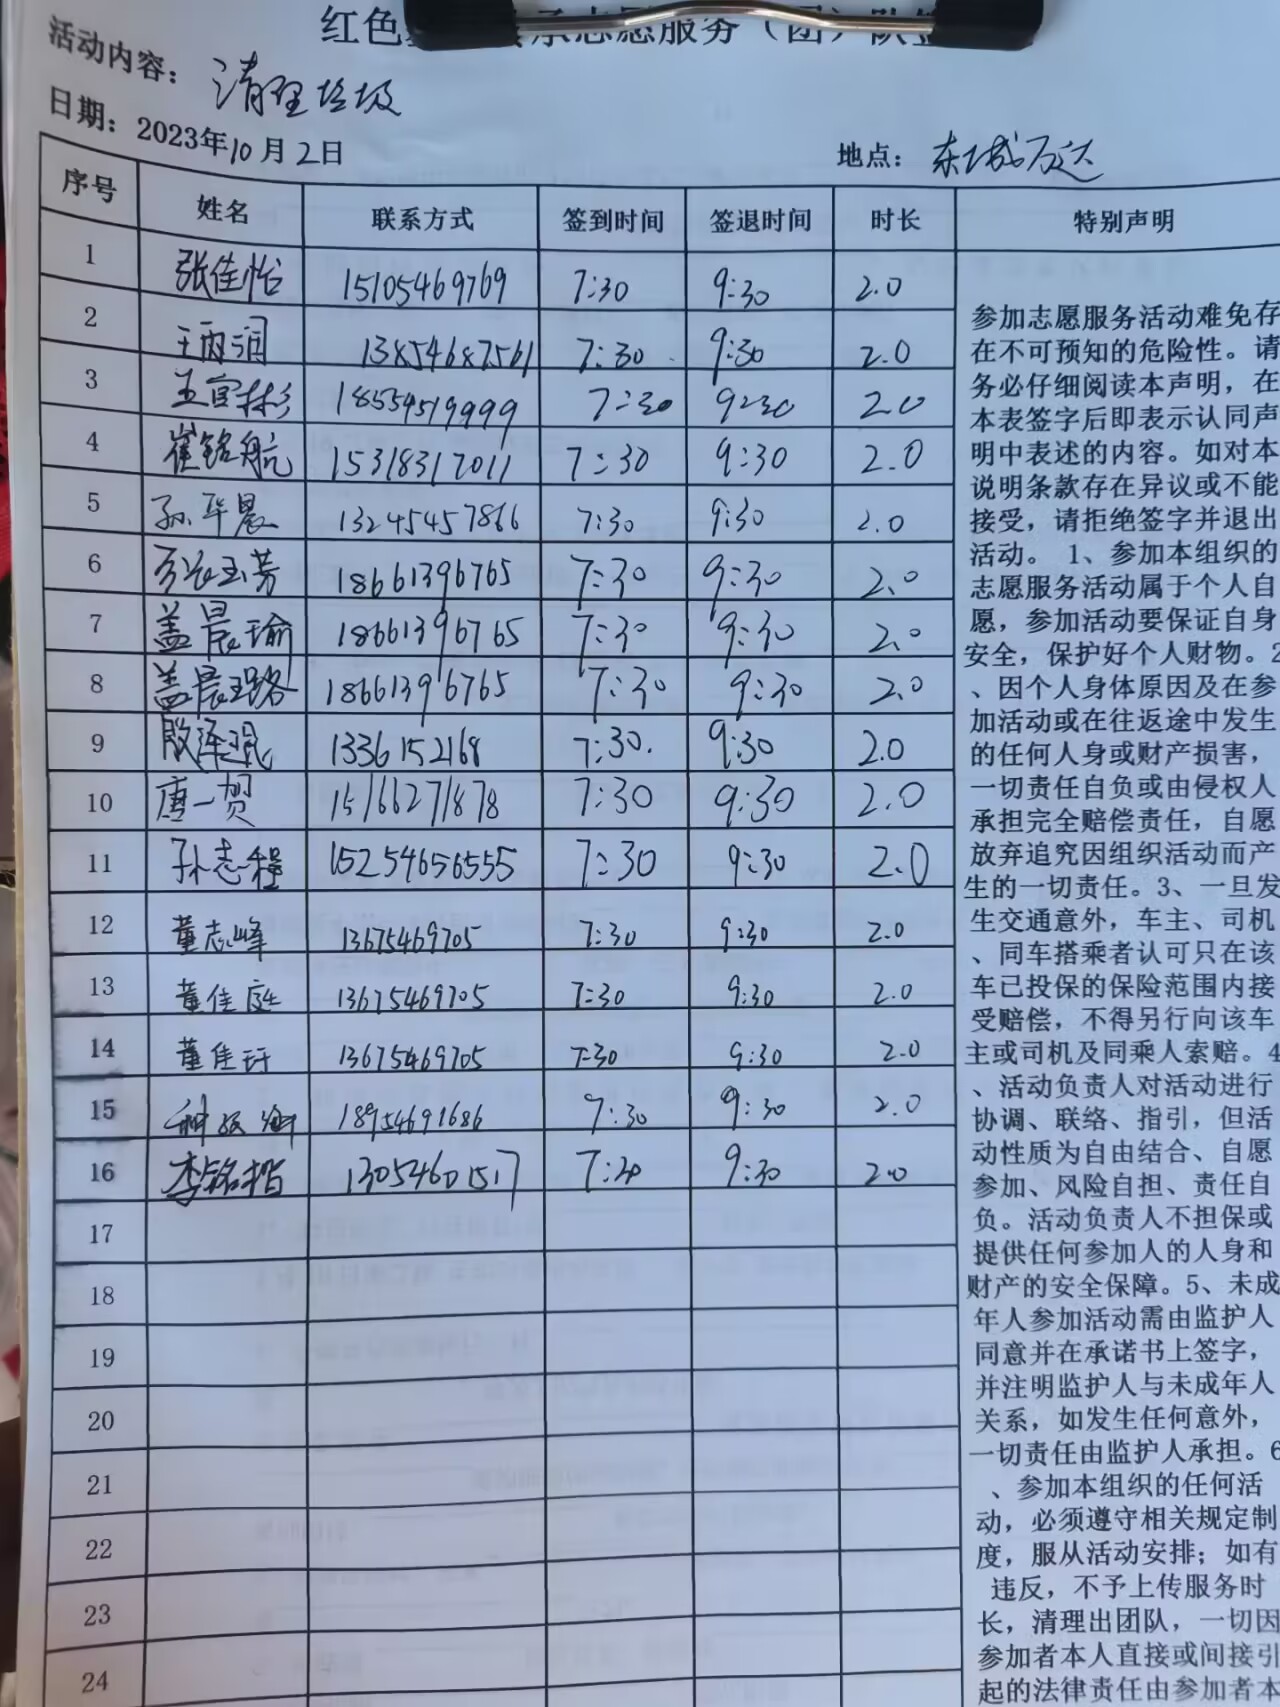 红色
志愿服务（团）队签
活动内容：清理垃圾
日期：2023年10月2日
地点：东城万达
序号 姓名 联系方式 签到时间 签退时间 时长 特别声明
1 张佳怡 15105469769 7:30 9:30 2.0
2 王雨润 13854687561 7:30 9:30 2.0
3 王宜彬 18554519999 7:30 9:30 2.0
4 崔铭航 15318317011 7:30 9:30 2.0
5 孙华晨 13245457866 7:30 9:30 2.0
6 玉芳 18661396765 7:30 9:30 2.0
7 盖晨瑜 18661396765 7:30 9:30 2.0
8 盖晨璐 18661396765 7:30 9:30 2.0
9 殷泽琨 1336152168 7:30 9:30 2.0
10 唐一贺 15166271878 7:30 9:30 2.0
11 孙志程 15254656555 7:30 9:30 2.0
12 董志峰 13675469705 7:30 9:30 2.0
13 董佳庭 13675469705 7:30 9:30 2.0
14 董佳玕 13675469705 7:30 9:30 2.0
15 18954691686 7:30 9:30 2.0
16 李铭楷 13054601517 7:30 9:30 2.0
17
18
19
20
21
22
23
24
参加志愿服务活动难免存
在不可预知的危险性。请
务必仔细阅读本声明，在
本表签字后即表示认同声
明中表述的内容。如对本
说明条款存在异议或不能
接受，请拒绝签字并退出
活动。1、参加本组织的
志愿服务活动属于个人自
愿，参加活动要保证自身
安全，保护好个人财物。2
、因个人身体原因及在参
加活动或在往返途中发生
的任何人身或财产损害，
一切责任自负或由侵权人
承担完全赔偿责任，自愿
放弃追究因组织活动而产
生的一切责任。3、一旦发
生交通意外，车主、司机
、同车搭乘者认可只在该
车已投保的保险范围内接
受赔偿，不得另行向该车
主或司机及同乘人索赔。4
、活动负责人对活动进行
协调、联络、指引，但活
动性质为自由结合、自愿
参加、风险自担、责任自
负。活动负责人不担保或
提供任何参加人的人身和
财产的安全保障。5、未成
年人参加活动需由监护人
同意并在承诺书上签字，
并注明监护人与未成年人
关系，如发生任何意外，
一切责任由监护人承担。6
、参加本组织的任何活
动，必须遵守相关规定制
度，服从活动安排；如有
违反，不予上传服务时
长，清理出团队，一切因
参加者本人直接或间接引
起的法律责任由参加者本